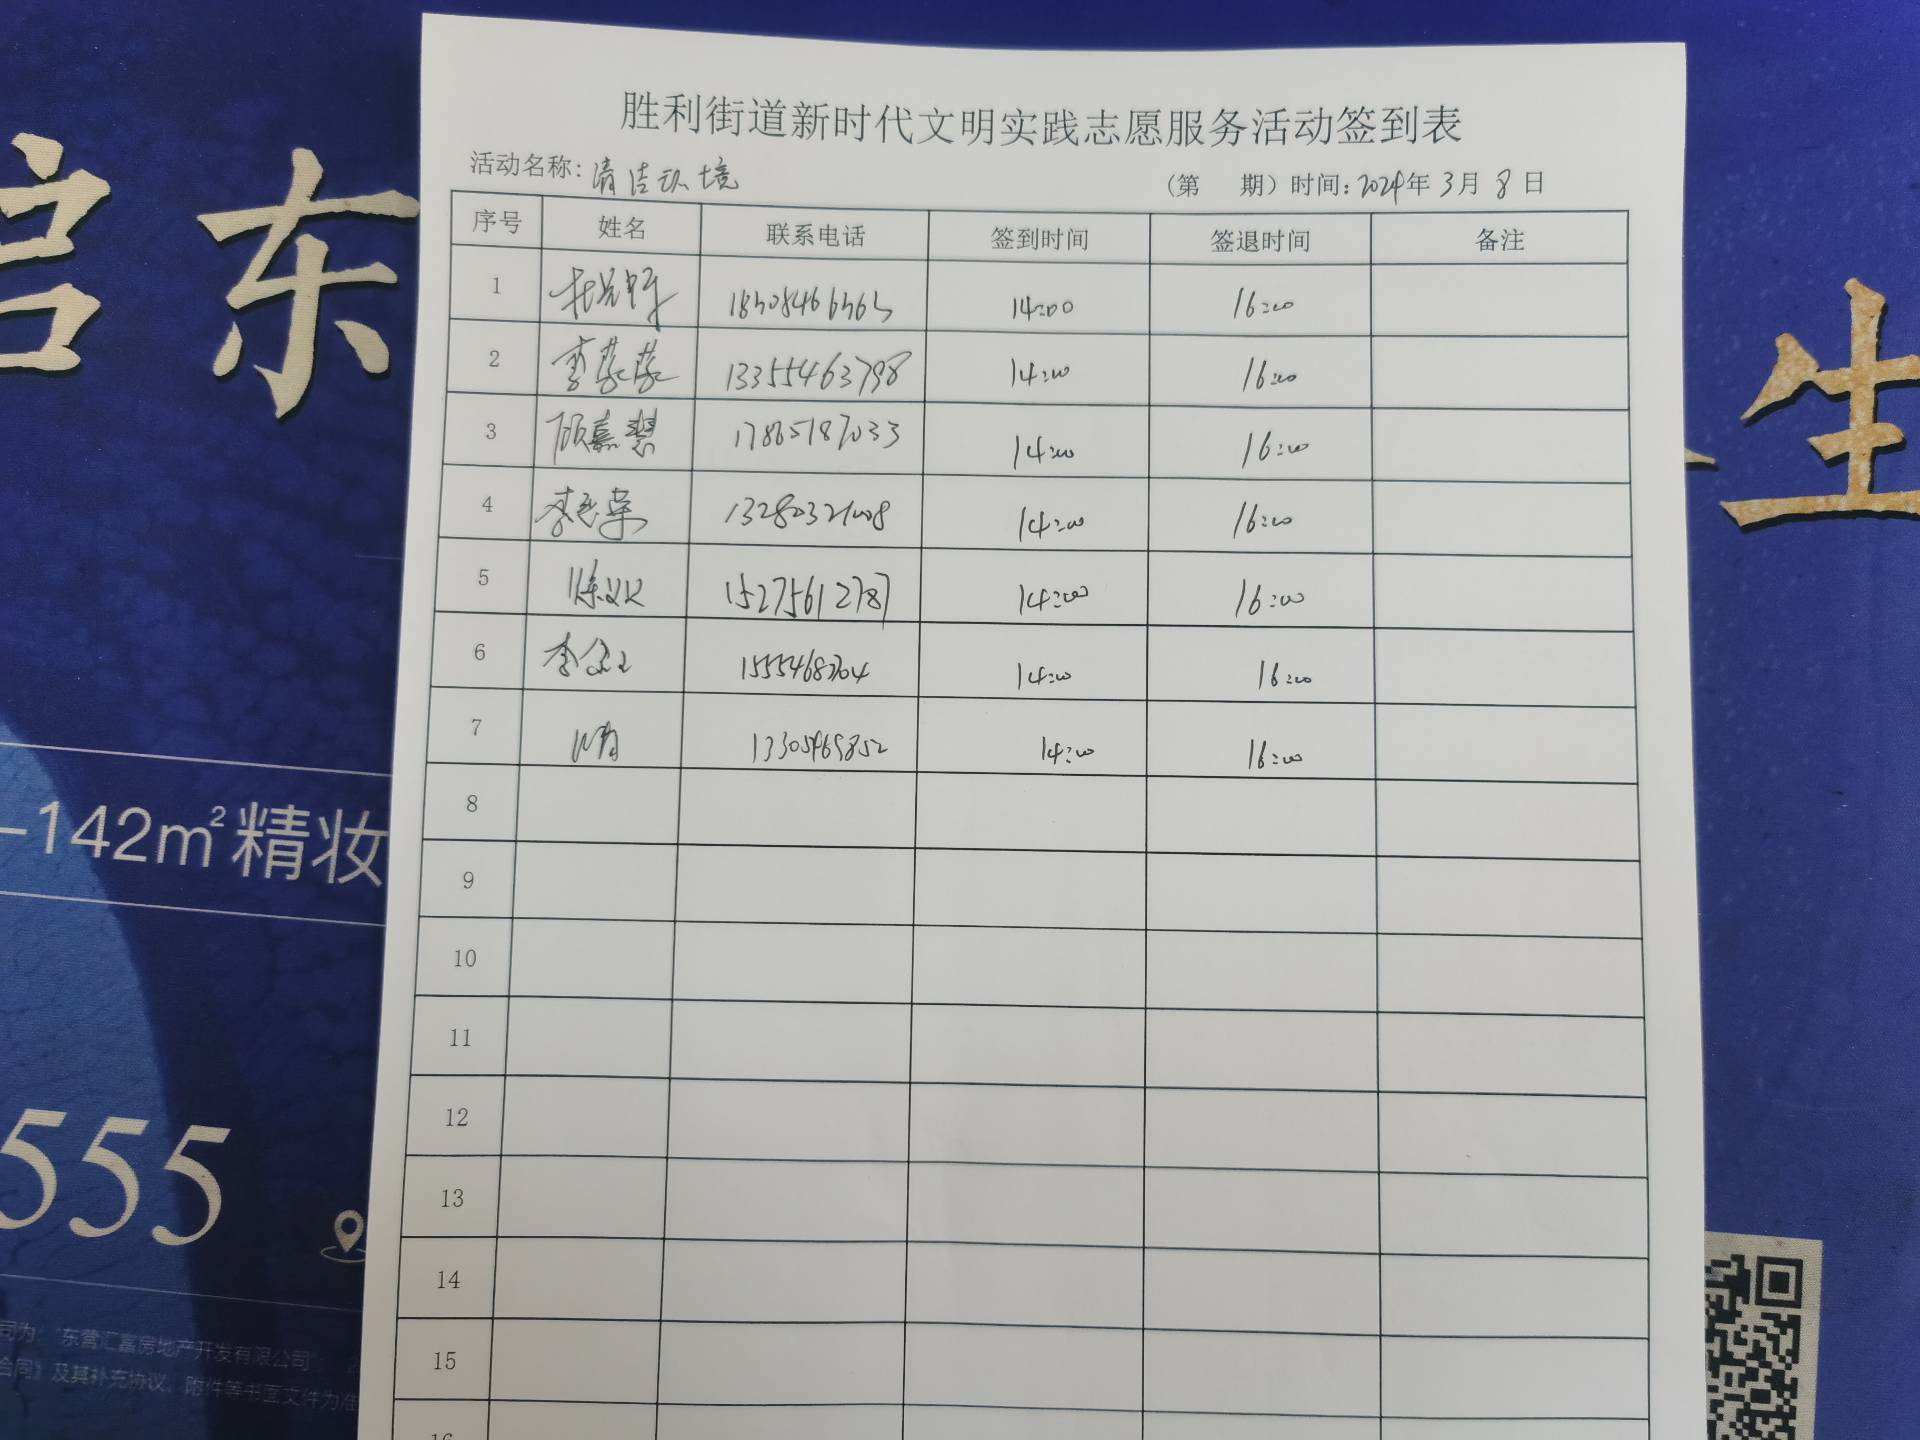 胜利街道新时代文明实践志愿服务活动签到表
活动名称：清洁环境 （第 期）时间：2024年 3月 8日
序号 姓名 联系电话 签到时间 签退时间 备注
1 14:00 16:00
2 李蒙蒙 13355463798 14:00 16:00
3 顾嘉慧 17865187033 14:00 16:00
4 14:00 16:00
5 陈双 15275612787 14:00 16:00
6 14:00 16:00
7 13305469852 14:00 16:00
8
9
10
11
12
13
14
15
16
启东
生
-142m²精妆
555
司为："东营汇富房地产开发有限公司"
合同》及其补充协议、附件等书面文件为准